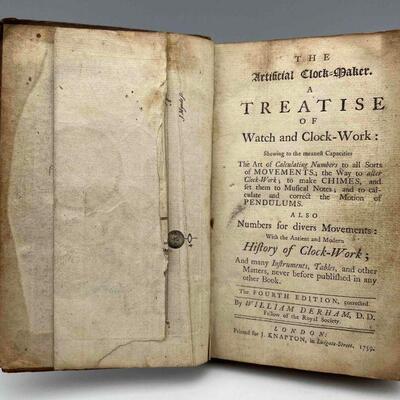 THE
Artificial Clock-Maker.
A
TREATISE
OF
Watch and Clock-Work:
Shewing to the meanest Capacities
The Art of Calculating Numbers to all Sorts
of MOVEMENTS; the Way to alter
Clock-Work; to make CHIMES, and
set them to Musical Notes; and to cal-
culate and correct the Motion of
PENDULUMS.
ALSO
Numbers for divers Movements:
With the Antient and Modern
History of Clock-Work;
And many Instruments, Tables, and other
Matters, never before published in any
other Book.
The FOURTH EDITION, corrected.
By WILLIAM DERHAM, D.D.
Fellow of the Royal Society.
LONDON:
Printed for J. KNAPTON, in Ludgate-Street. 1759.